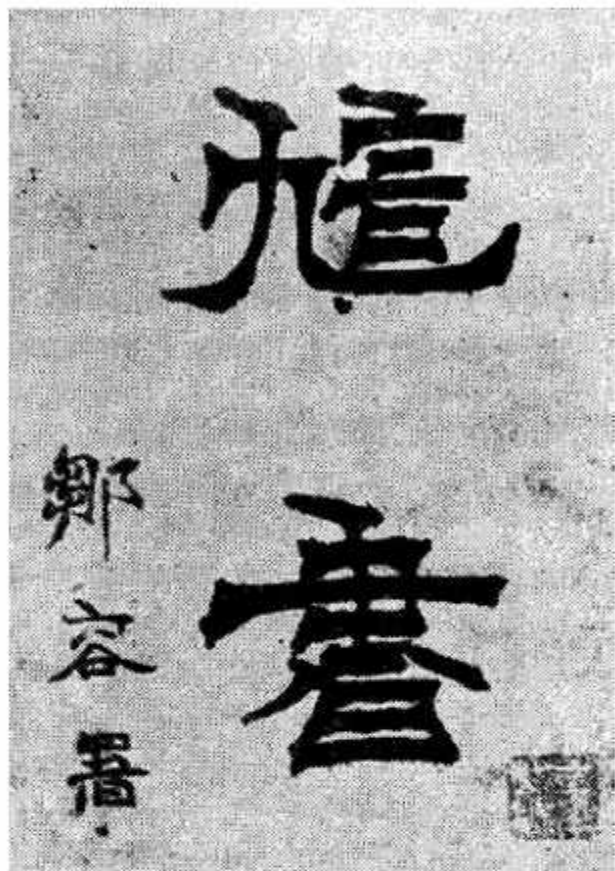 訄書
鄒容